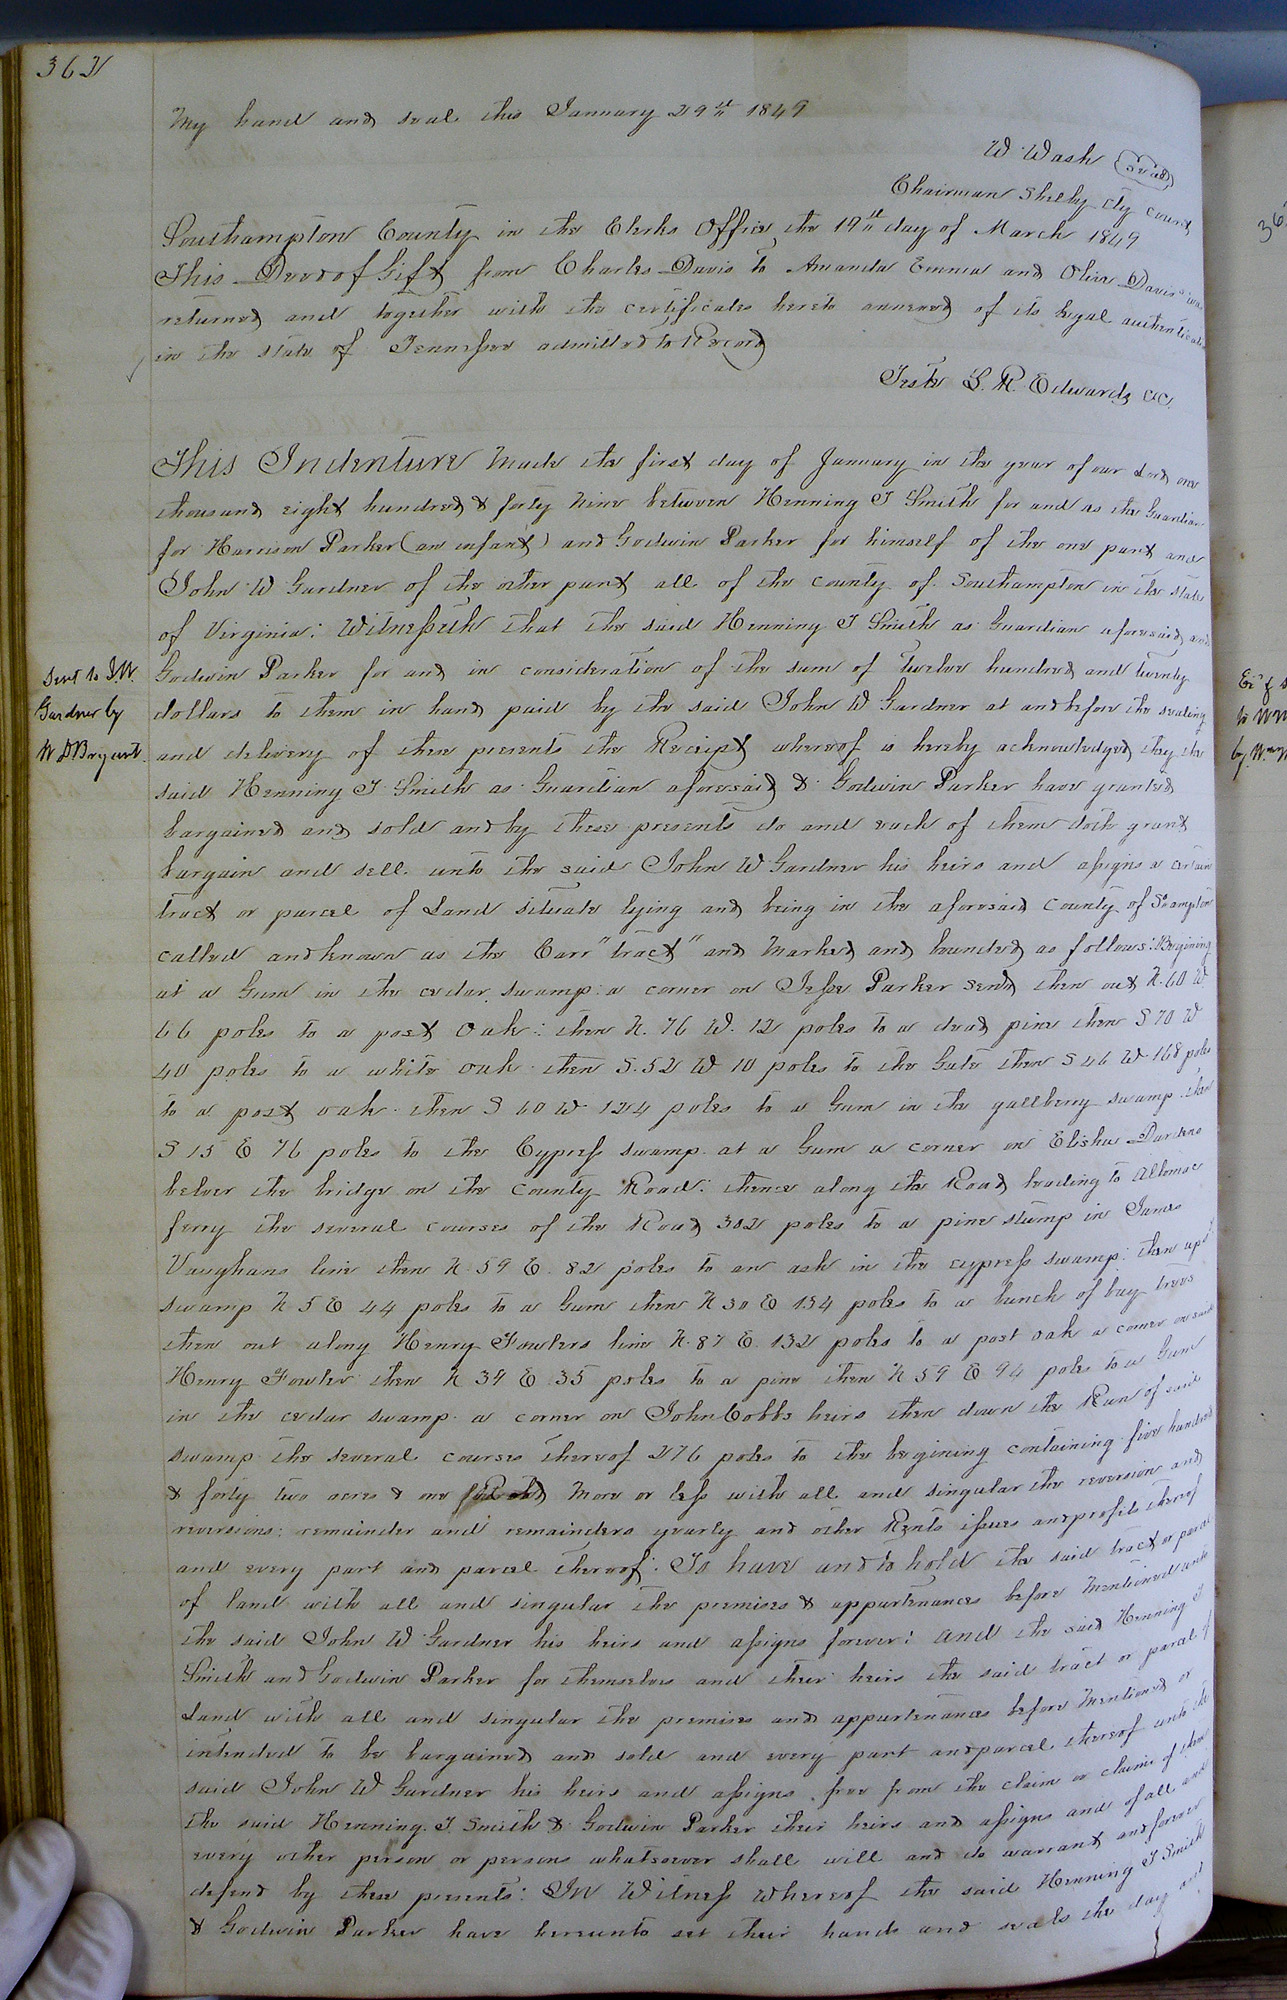 362
My hand and seal this January 29th 1849
W. Wash Seal
Chairman Shelby Cty Court
Southampton County in the Clerks Office the 19th day of March 1849
This Deed of Gift from Charles Davis to Amanda Emma and Olivia Davis was
returned and together with the certificates hereto annexed of its legal authentication
in the state of Tenneſsee admitted to Record
Teste L. R. Edwards CC.
This Indenture Made the first day of January in the year of our Lord one
thousand eight hundred & forty Nine between Henning T Smith for and as the Guardian
for Harrison Parker (an infant) and Godwin Parker for himself of the one part and
John W Gardner of the other part all of the county of Southampton in the state
of Virginia: Witneſseth that the said Henning T Smith as Guardian aforesaid and
Sent to J.W.
Gardner by
W D Bryant.
Godwin Parker for and in consideration of the sum of twelve hundred and twenty
dollars to them in hand paid by the said John W Gardner at and before the sealing
and delivery of these presents the Receipt whereof is hereby acknowledged, they the
said Henning T. Smith as Guardian aforesaid & Godwin Parker have granted
bargained and sold and by these presents do and each of them doth grant
bargain and sell unto the said John W Gardner his heirs and aſsigns a certain
tract or parcel of Land situate lying and being in the aforesaid County of So.ampton
called and known as the Carr "tract" and Marked and bounded as follows: Begining
at a Gum in the cedar swamp: a corner on Jeſse Parker Send then out N. 60 W
66 poles to a post Oak: then N. 76 W. 12 poles to a dead pine then S 70 W
40 poles to a white oak then S. 52 W 10 poles to the Gate then S 46 W 168 poles
to a post oak. then S 60 W 124 poles to a Gum in the gallberry swamp. then
S 15 E 76 poles to the Cypreſs swamp. at a Gum a corner on Elisha Dardens
below the bridge on the County Road: thence along the Road leading to
ferry the several courses of the Road 302 poles to a pine stump in James
Vaughans line then N. 59 E. 82 poles to an ash in the cypreſs swamp: then up
swamp N 5 E 44 poles to a Gum then N 30 E 134 poles to a bunch of bay trees
then out along Henry Fowlers line N. 87 E. 132 poles to a post oak a corner on said
Henry Fowler then N 39 E 35 poles to a pine then N 59 E 94 poles to a Gum
in the cedar swamp a corner on John Cobbs heirs then down the Run of said
swamp the several courses thereof 276 poles to the begining containing five hundred
& forty two acres & one More or leſs with all and singular the reversion and
reversions: remainder and remainders yearly and other Rents iſsues and profits thereof
and every part and parcel thereof: To have and to hold the said tract or parcel
of land with all and singular the premises & appurtenances before Mentioned unto
the said John W Gardner his heirs and aſsigns forever: And the said Henning T
Smith and Godwin Parker for themselves and their heirs the said tract or parcel of
Land with all and singular the premises and appurtenances before Mentioned or
intended to be bargained and sold and every part and parcel thereof unto the
said John W Gardner his heirs and aſsigns free from the claim or claims of them
the said Henning T. Smith & Godwin Parker their heirs and aſsigns and of all and
every other person or persons whatsoever shall will and do warrant and forever
defend by these presents: In Witneſs Whereof the said Henning T Smith
& Godwin Parker have hereunto set their hands and seals the day and